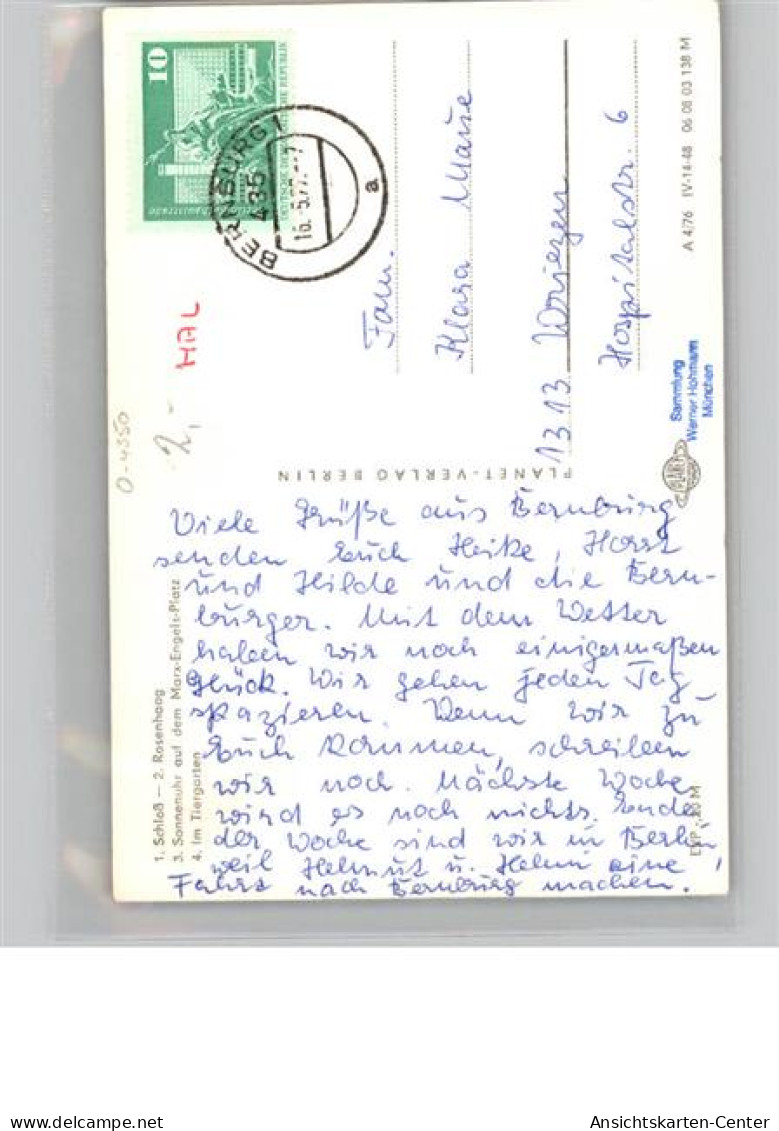 10
DEUTSCHE DEMOKRATISCHE REPUBLIK
BERNBURG 1
435
16.-5.77.-7
a
HAL
2,-
O-4350
Fam.
Klara Mause
1313 Wriezen
Hospitalstr. 6
PLANET-VERLAG BERLIN
PLANET
Sammlung
Werner Hohmann
München
A 4/76 IV-14-48 06 08 03 138 M
EVP -,20 M
1. Schloß – 2. Rosenhaag
3. Sonnenuhr auf dem Marx-Engels-Platz
4. Im Tiergarten
Viele Grüße aus Bernburg
senden Euch Heike, Horst
und Hilde und die Bern-
burger. Mit dem Wetter
haben wir noch einigermaßen
Glück. Wir gehen jeden Tag
spazieren. Wenn wir zu
Euch kommen, schreiben
wir noch. Nächste Woche
wird es noch nichts. Ende
der Woche sind wir in Berlin,
weil Helmut u. Helmi eine
Fahrt nach Bernburg machen.
delcampe.net
Ansichtskarten-Center